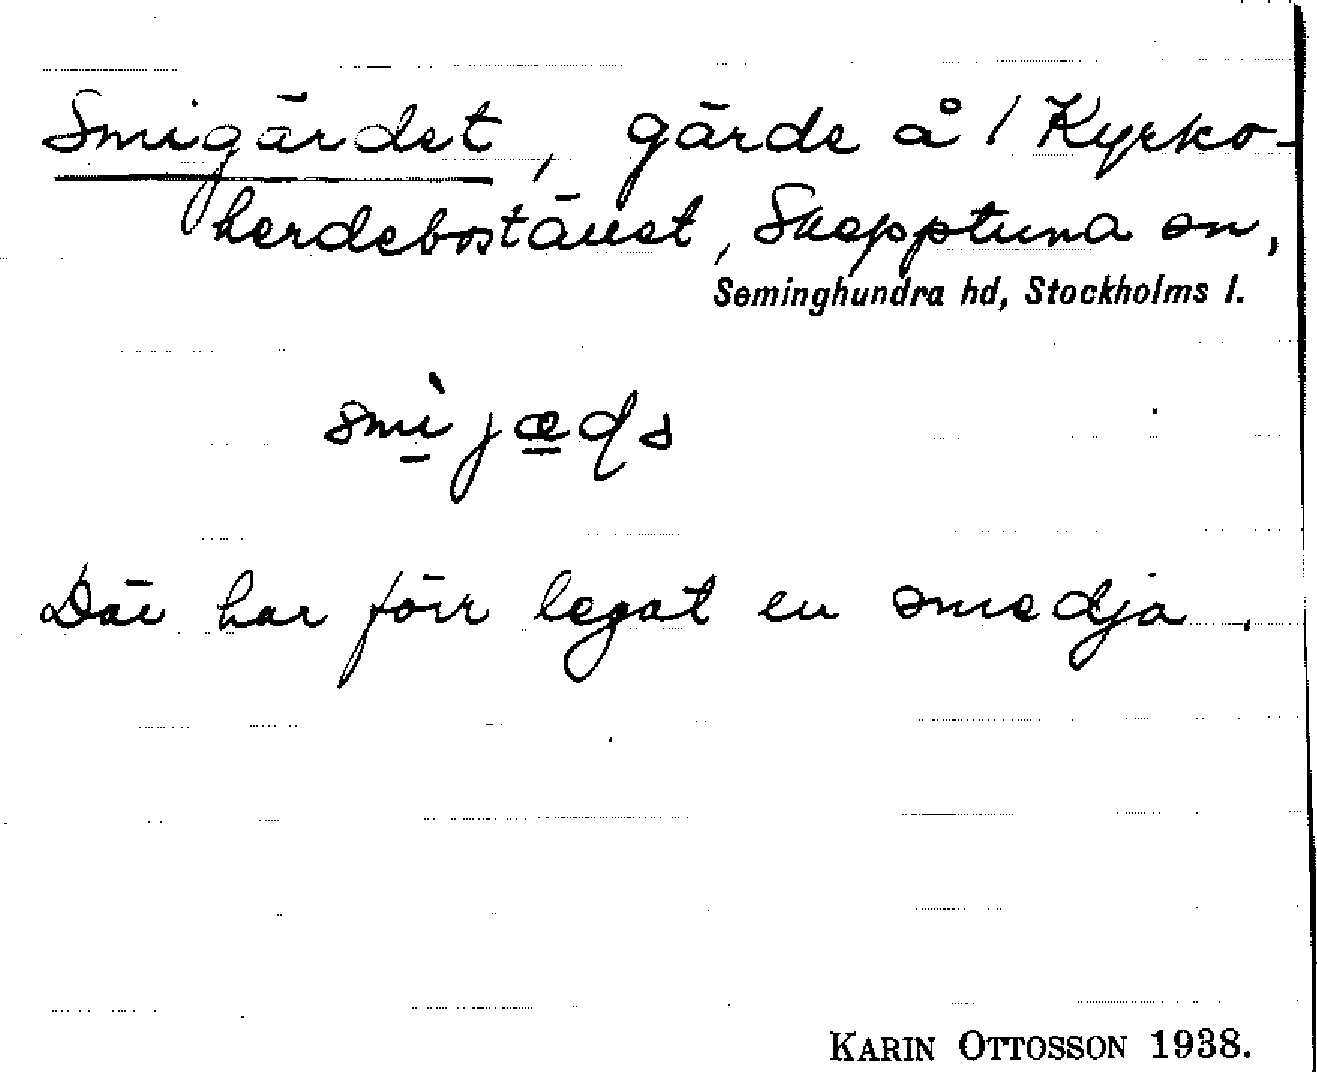 Smigärdet, gärde å 1 Kyrko-
herdebostället, Skepptuna sn,
Seminghundra hd, Stockholms l.
Där har förr legat en smedja.
KARIN OTTOSSON 1938.